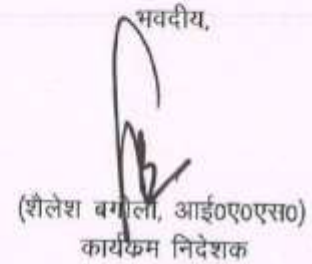 भवदीय,
(शैलेश बगोली, आई०ए०एस०)
कार्यक्रम निदेशक